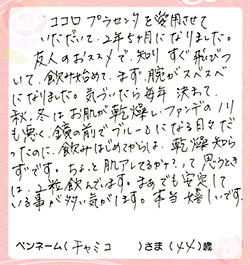 ココロプラセンタを愛用させて
いただいて、2年5ヶ月になりました。
友人のおススメで、知り すぐ飛びつ
いて、飲み始めて、まず、腕がスベスベ
になりました。気づいたら毎年 決まって、
秋、冬はお肌が乾燥し、ファンデのノリ
も悪く、鏡の前でブルーになる日々だ
ったのに、飲みはじめてからは、乾燥知ら
ずです。ちょっと肌アレてるかナ?って思うとき
は、2粒飲んでます。まぁでも安定して
いる事が多い気がします。本当嬉しいです。
ペンネーム(チャミコ)さま(44)歳